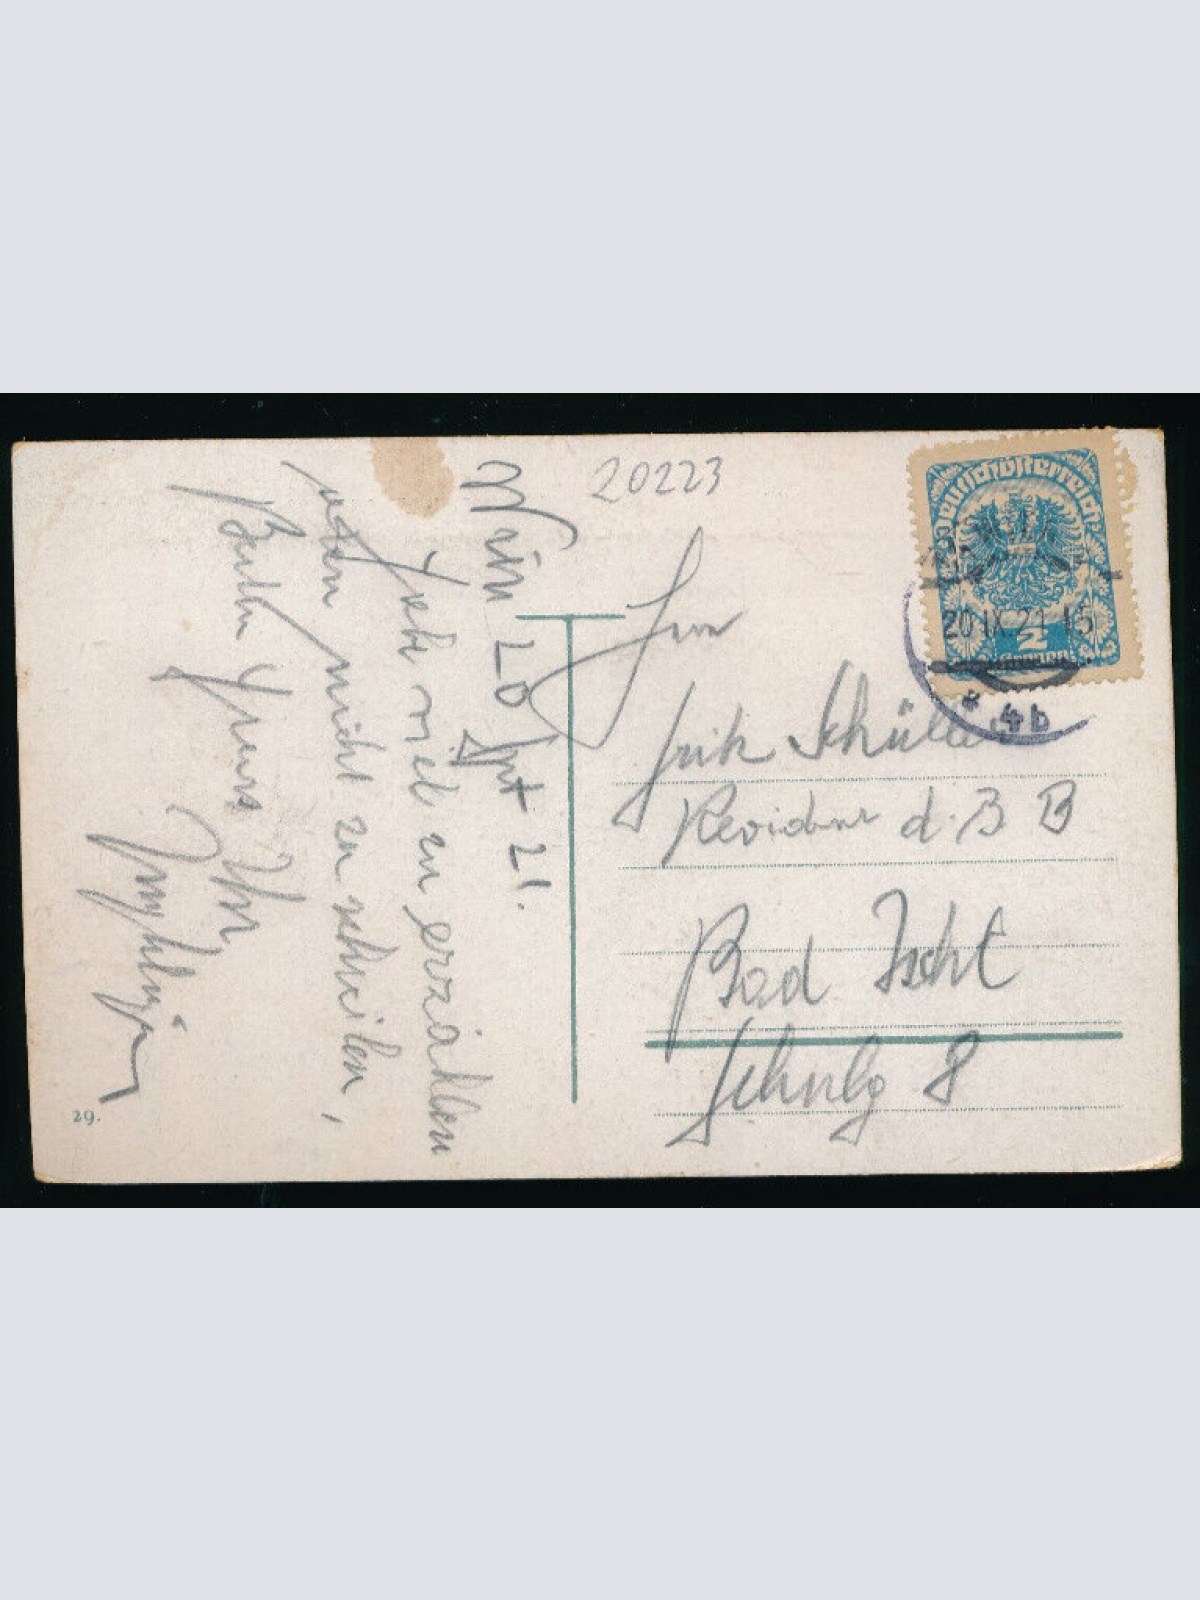 20223
Deutschösterreich
2
Kronen
20 IX 21 15
* 4b
Wien 20 Sept 21.
Habe viel zu erzählen
nicht zu schreiben,
Besten Gruss
Ihr
Herrn
Frik Schüller
Revident d. B B
Bad Ischl
Schulg 8
29.